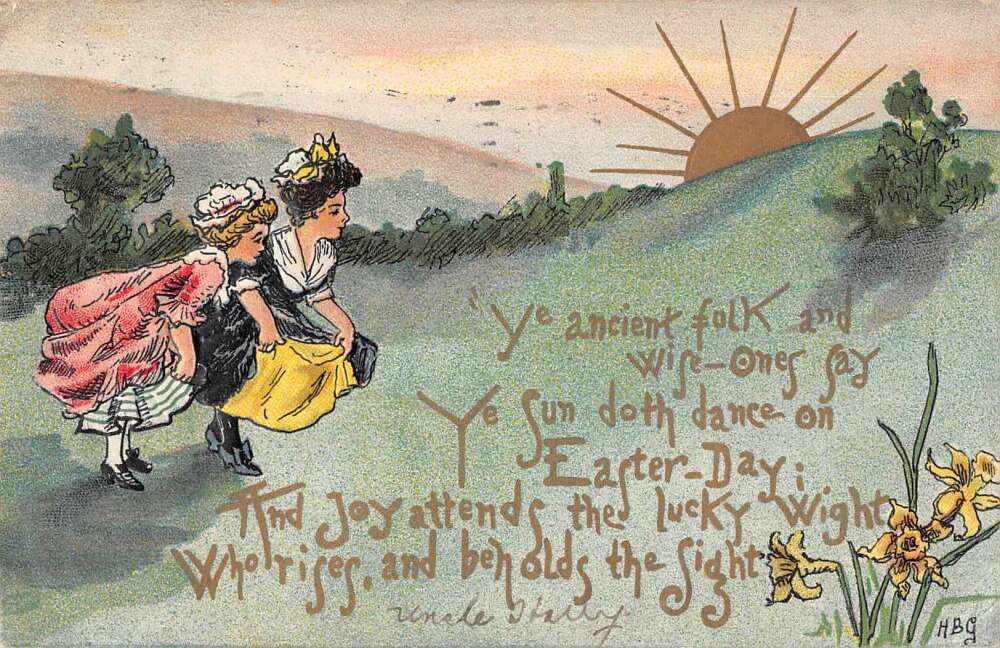 "Ye ancient folk and
wise-ones say
Ye sun doth dance on
Easter-Day;
And Joy attends the lucky Wight
Who rises, and beholds the sight
Uncle
HBG